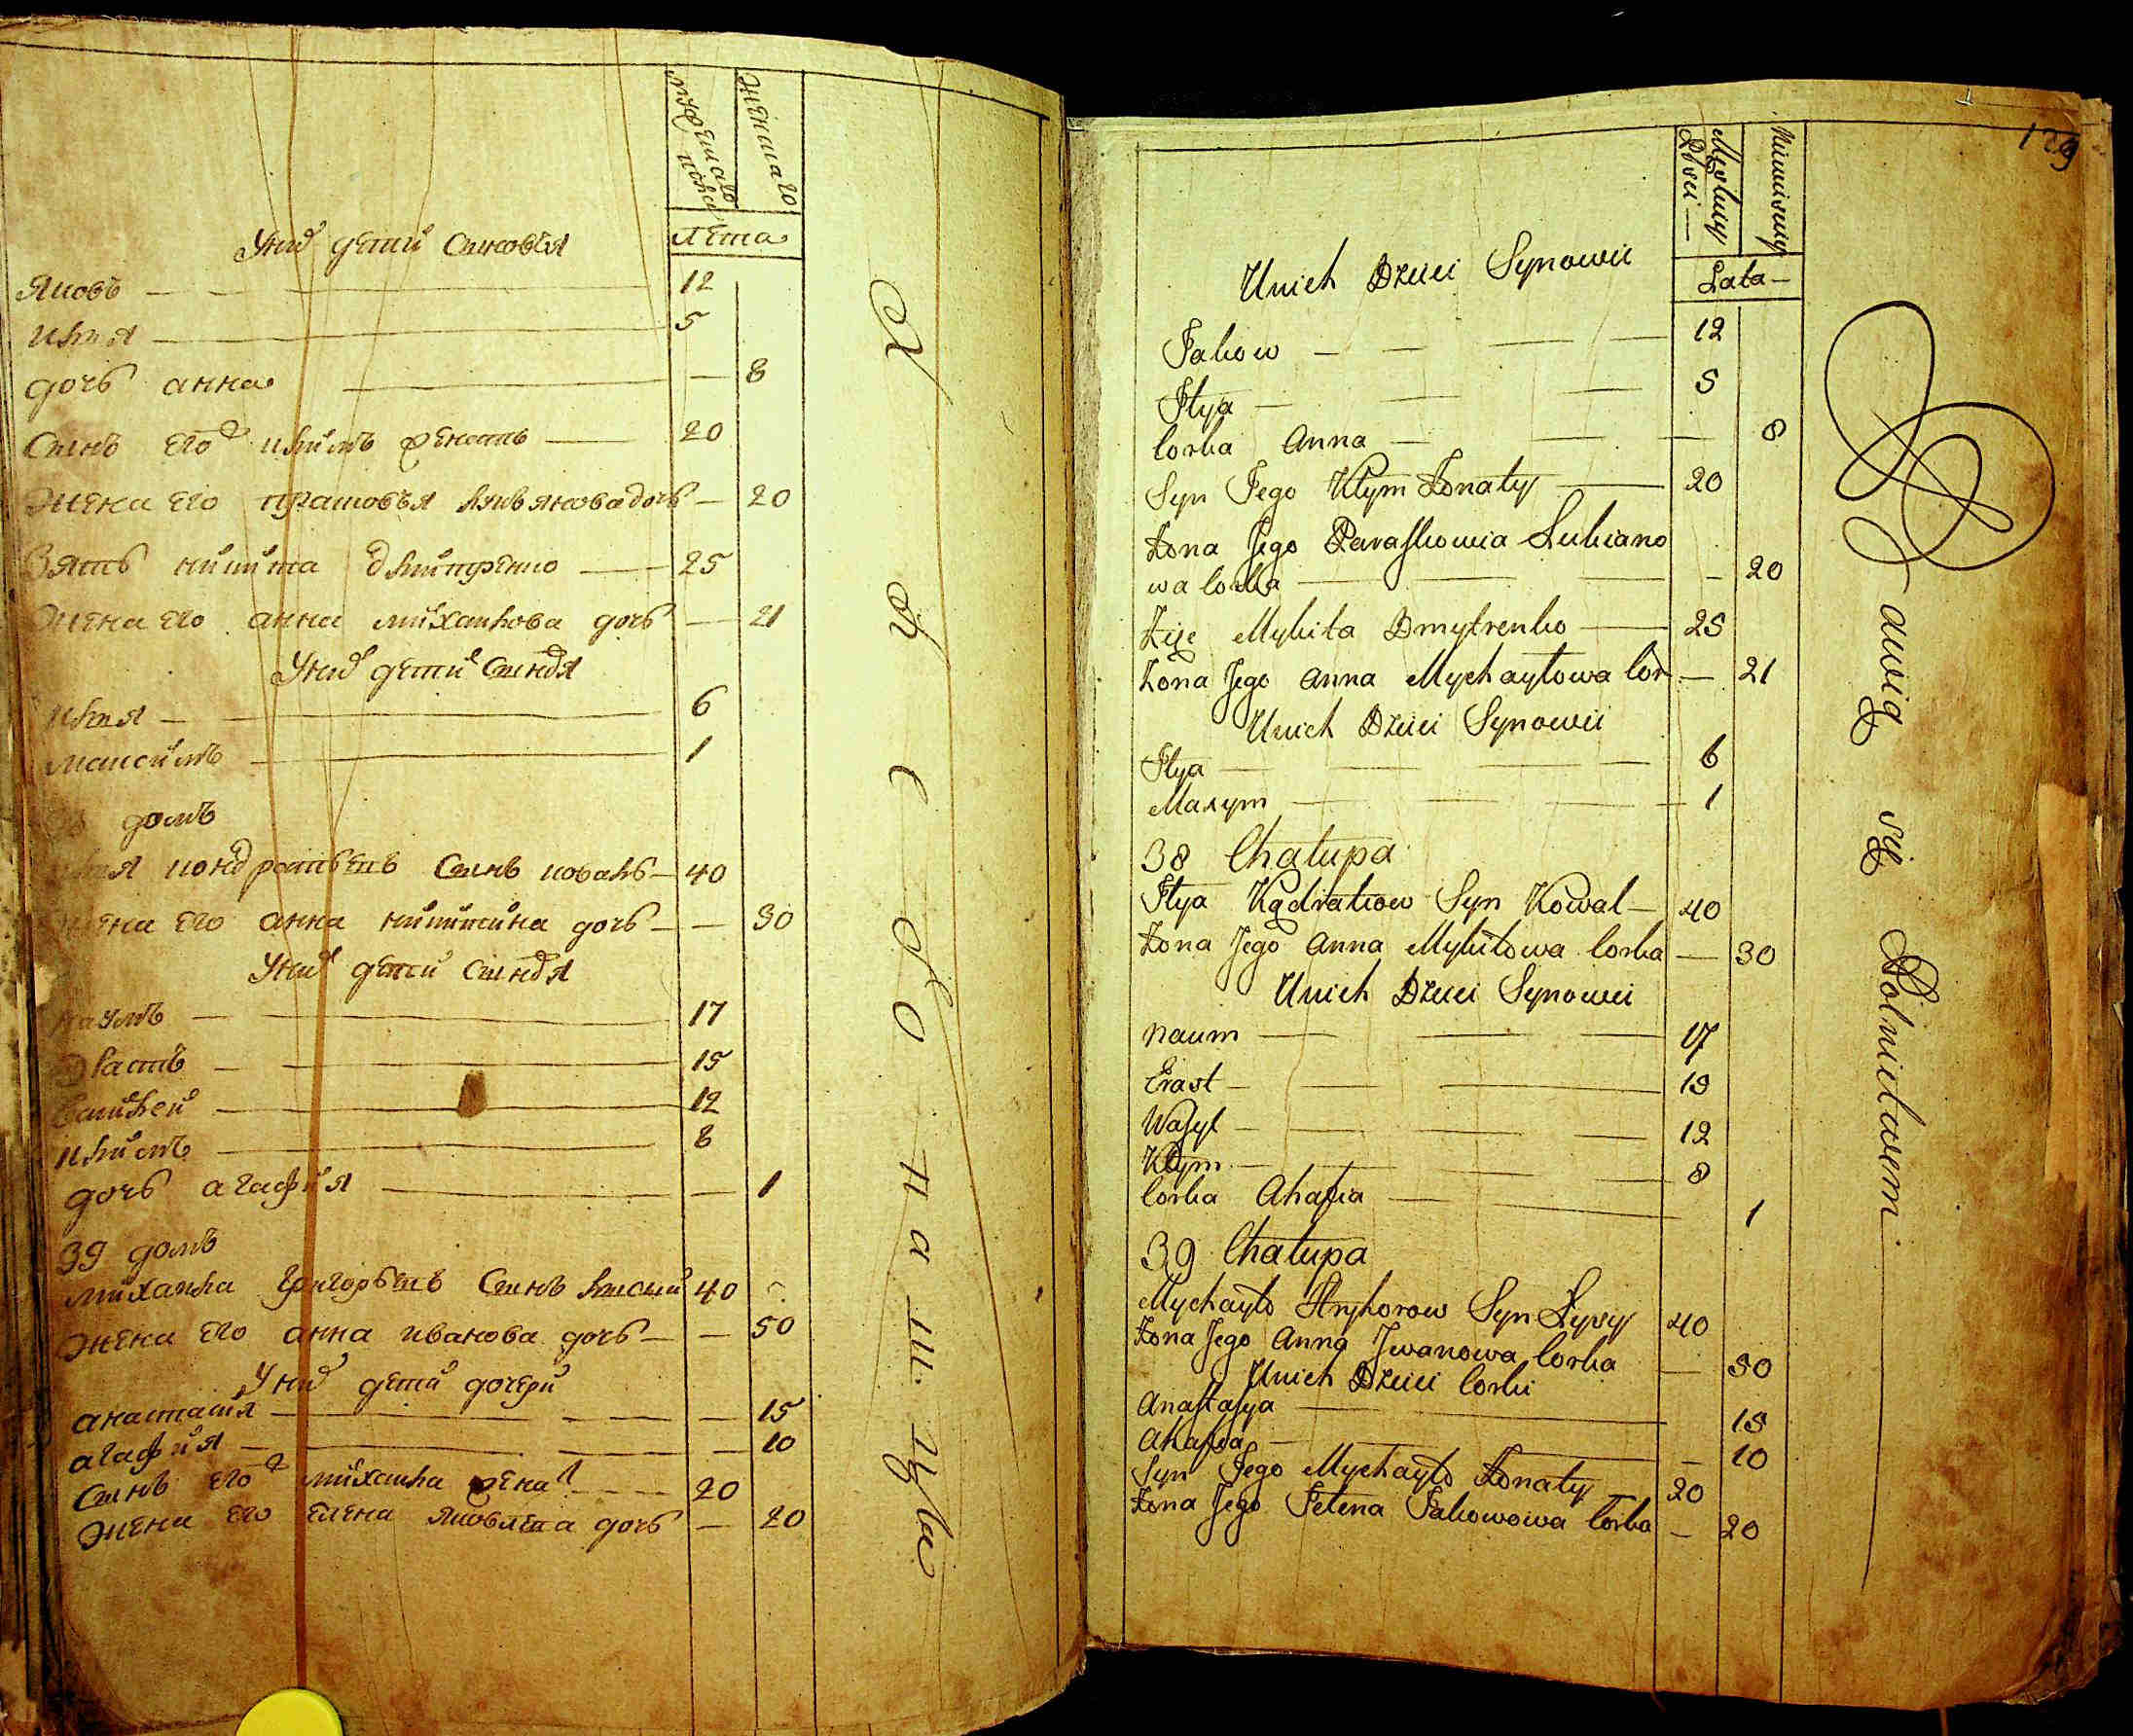 мужеска пола
женска
лета
У них дети синовья
Яковъ 12
илия 5
дочь анна — 8
Синъ его 2 климъ женатъ 20
жена его прасковья лукянова дочь — 20
Зять никита дмитренко 25
жена его анна михайлова дочь — 21
У них дети синовя
илия 6
максимъ 1
38 домъ
илия кондратьевъ Синъ коваль 40
жена его анна никитина дочь — 30
У них дети синовя
наумъ 17
Ерастъ 15
Василей 12
климъ 8
дочь агафия — 1
39 домъ
михайла григорьевъ Синъ лисий 40
жена его анна иванова дочь — 50
У них дети дочери
анастасия — 15
агафия — 10
Синъ его 2 михайла жена 20
жена его елена яковлева дочь — 20
129
Męskiey Płci
Niewieściey
Lata
U nich Dzieci Synowii
Jakow 12
Ilya 5
Corka Anna 8
Syn Jego Kłym Żonaty 20
Żona Jego Paraskowia Lukiano
wa Corka — 20
Zięć Mykita Dmytrenko 25
Żona Jego Anna Mychayłowa Cor — 21
U nich Dzieci Synowii
Ilya 6
Maxym 1
38 Chałupa
Ilya Kądratiow Syn Kowal 40
Żona Jego Anna Mykitowa Corka — 30
U nich Dzieci Synowii
Naum 17
Erast 15
Wasyl 12
Kłym 8
Corka Ahafia 1
39 Chałupa
Mychayło Hryhorow Syn Łysy 40
Żona Jego Anna Jwanowa Corka — 50
U nich Dzieci Corki
Anastasya 15
Ahafia — 10
Syn Jego Mychayło Żonaty 20
Żona Jego Jelena Jakowowa Corka — 20
awią się Rolnictwem